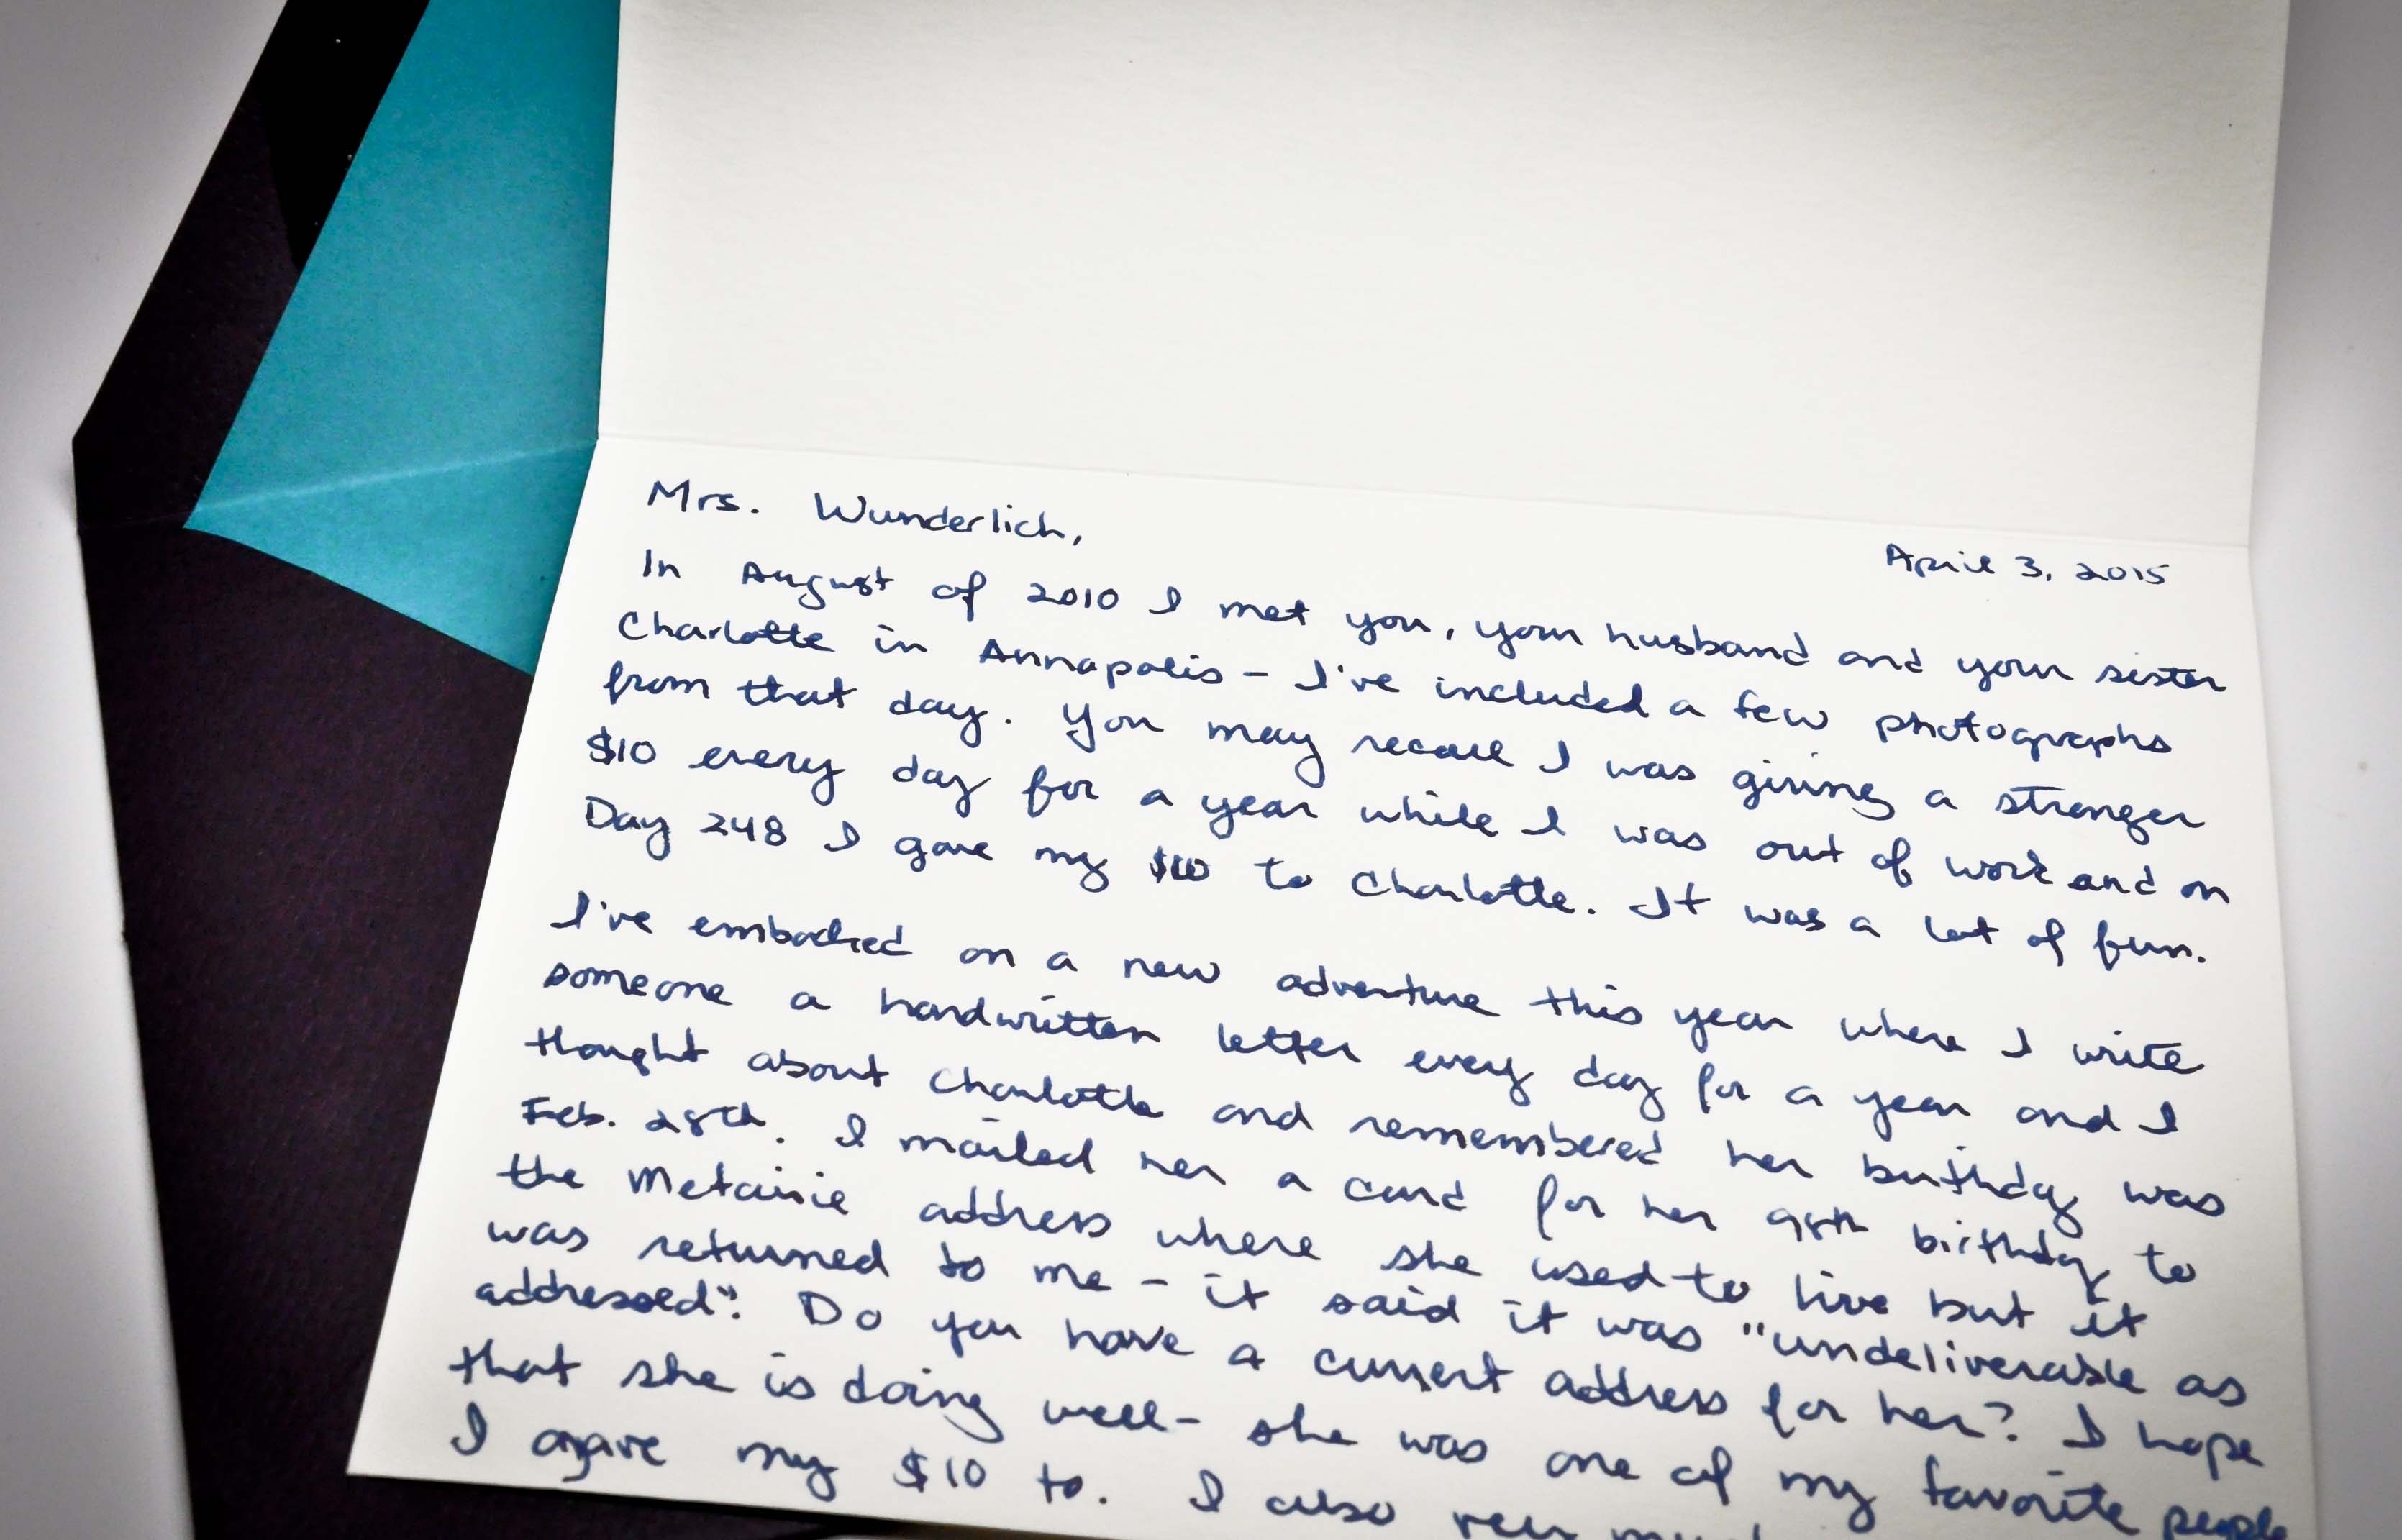 Mrs. Wunderlich,
April 3, 2015
In August of 2010 I met you, your husband and your sister
Charlotte in Annapolis - I've included a few photographs
from that day. You may recall I was giving a stranger
$10 every day for a year while I was out of work and on
Day 248 I gave my $10 to Charlotte. It was a lot of fun.
I've embarked on a new adventure this year where I write
someone a handwritten letter every day for a year and I
thought about Charlotte and remembered her birthday was
Feb. 28th. I mailed her a card for her 98th birthday to
the Metairie address where she used to live but it
was returned to me - it said it was "undeliverable as
addressed". Do you have a current address for her? I hope
that she is doing well - she was one of my favorite people
I gave my $10 to. I also very much